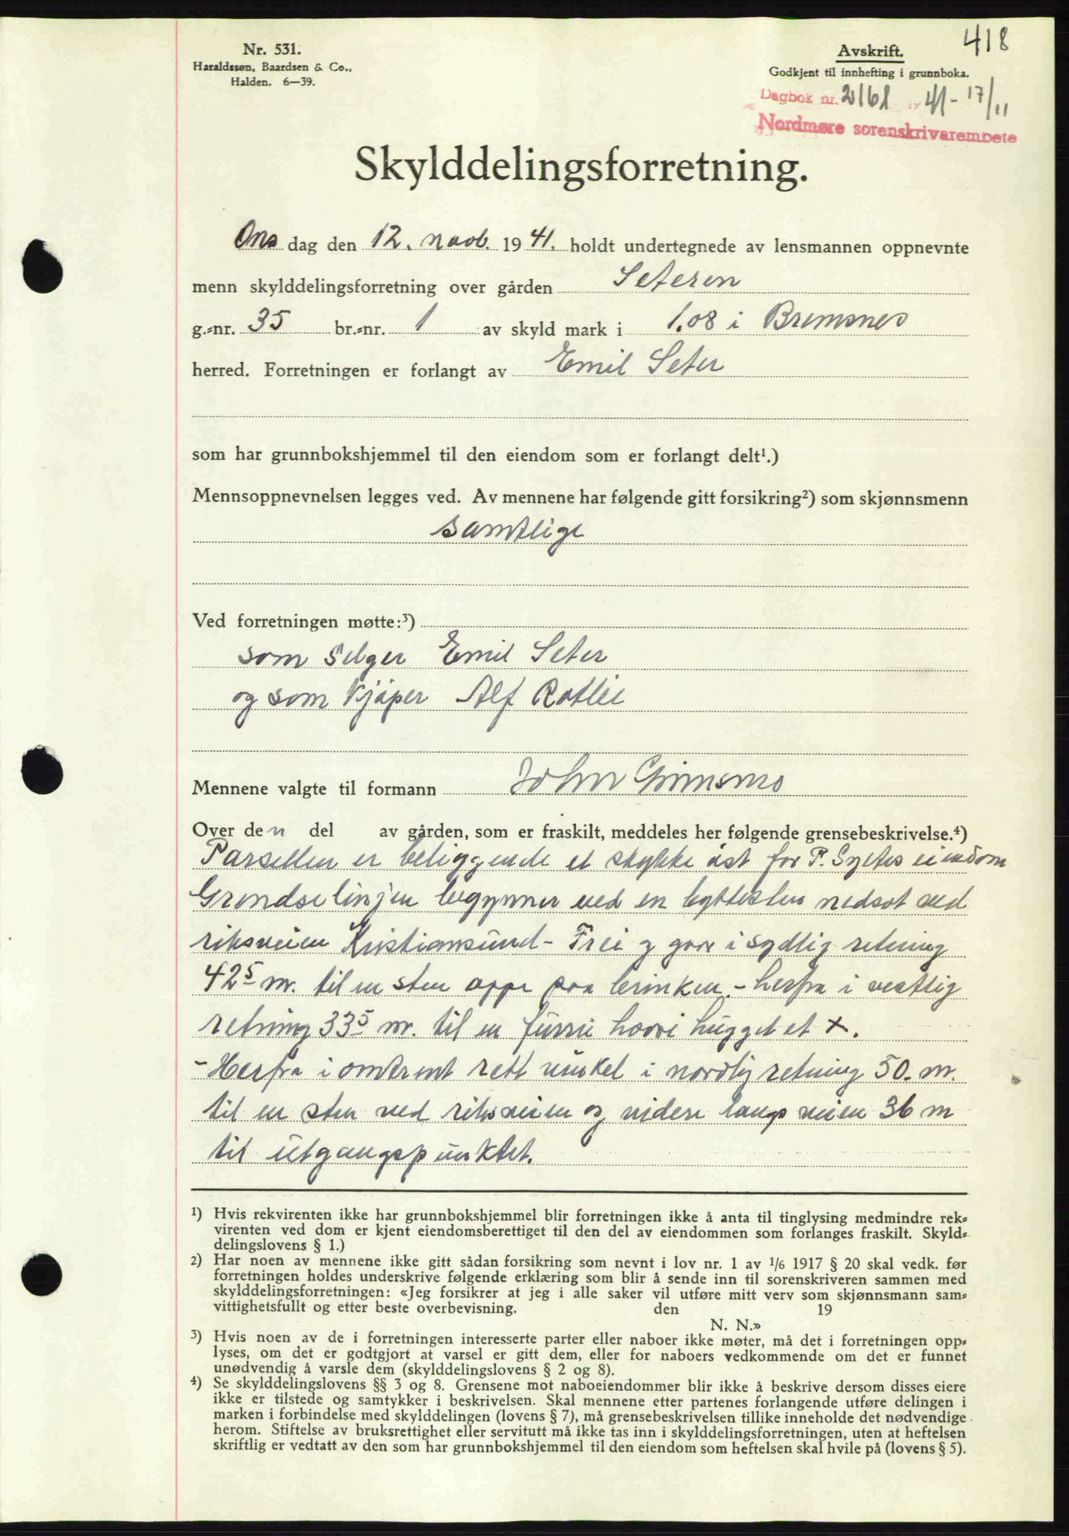 418
Nr. 531.
Haraldssøn, Baardsen & Co.,
Halden. 6—39.
Avskrift.
Godkjent til innhefting i grunnboka.
Dagbok nr. 2168 1941 - 17/11
Nordmøre sorenskrivarembete
Skylddelingsforretning.
Ons dag den 12. novb. 19 41. holdt undertegnede av lensmannen oppnevnte
menn skylddelingsforretning over gården Seteren
g.-nr. 35 br.-nr. 1 av skyld mark i 1.08 i Bremsnes
herred. Forretningen er forlangt av Emil Seter
som har grunnbokshjemmel til den eiendom som er forlangt delt¹.)
Mennsoppnevnelsen legges ved. Av mennene har følgende gitt forsikring²) som skjønnsmenn
samtlige
Ved forretningen møtte:³)
som selger Emil Seter
og som kjøper Alf Rotlie
Mennene valgte til formann John Grimsmo
Over den del av gården, som er fraskilt, meddeles her følgende grensebeskrivelse.⁴)
Parsellen er beliggende et stykke øst for P. eiendom
Grendselinjen begynner ved en byttesten nedsat ved
riksveien Kristiansund - Frei og gaar i sydlig retning
42⁵ m. til en sten oppe paa brinken. - herfra i vestlig
retning 33⁵ m. til en furru hvori hugget et x.
- Herfra i omtrent rett vinkel i nordlig retning 50. m.
til en sten ved riksveien og videre langs veien 36 m
til utgangspunktet.
¹) Hvis rekvirenten ikke har grunnbokshjemmel blir forretningen ikke å anta til tinglysing medmindre rek-
virenten ved dom er kjent eiendomsberettiget til den del av eiendommen som forlanges fraskilt. Skyld-
delingslovens § 1.)
²) Har noen av mennene ikke gitt sådan forsikring som nevnt i lov nr. 1 av 1/6 1917 § 20 skal vedk. før
forretningen holdes underskrive følgende erklæring som blir å sende inn til sorenskriveren sammen med
skylddelingsforretningen: «Jeg forsikrer at jeg i alle saker vil utføre mitt verv som skjønnsmann sam-
vittighetsfullt og etter beste overbevisning. den 19
N. N.»
³) Hvis noen av de i forretningen interesserte parter eller naboer ikke møter, må det i forretningen opp-
lyses, om det er godtgjort at varsel er gitt dem, eller for naboers vedkommende om det er funnet
unødvendig å varsle dem (skylddelingslovens § 2 og 8).
⁴) Se skylddelingslovens §§ 3 og 8. Grensene mot naboeiendommer blir ikke å beskrive dersom disses eiere
ikke er tilstede og samtykker i beskrivelsen. Skal mennene etter partenes forlangende utføre delingen i
marken i forbindelse med skylddelingen (lovens § 7), må grensebeskrivelsen tillike inneholde det nødvendige
herom. Stiftelse av bruksrettighet eller servitutt må ikke tas inn i skylddelingsforretningen, uten at heftelsen
skriftlig er vedtatt av den som har grunnbokshjemmel til den eiendom som heftelsen skal hvile på (lovens § 5).